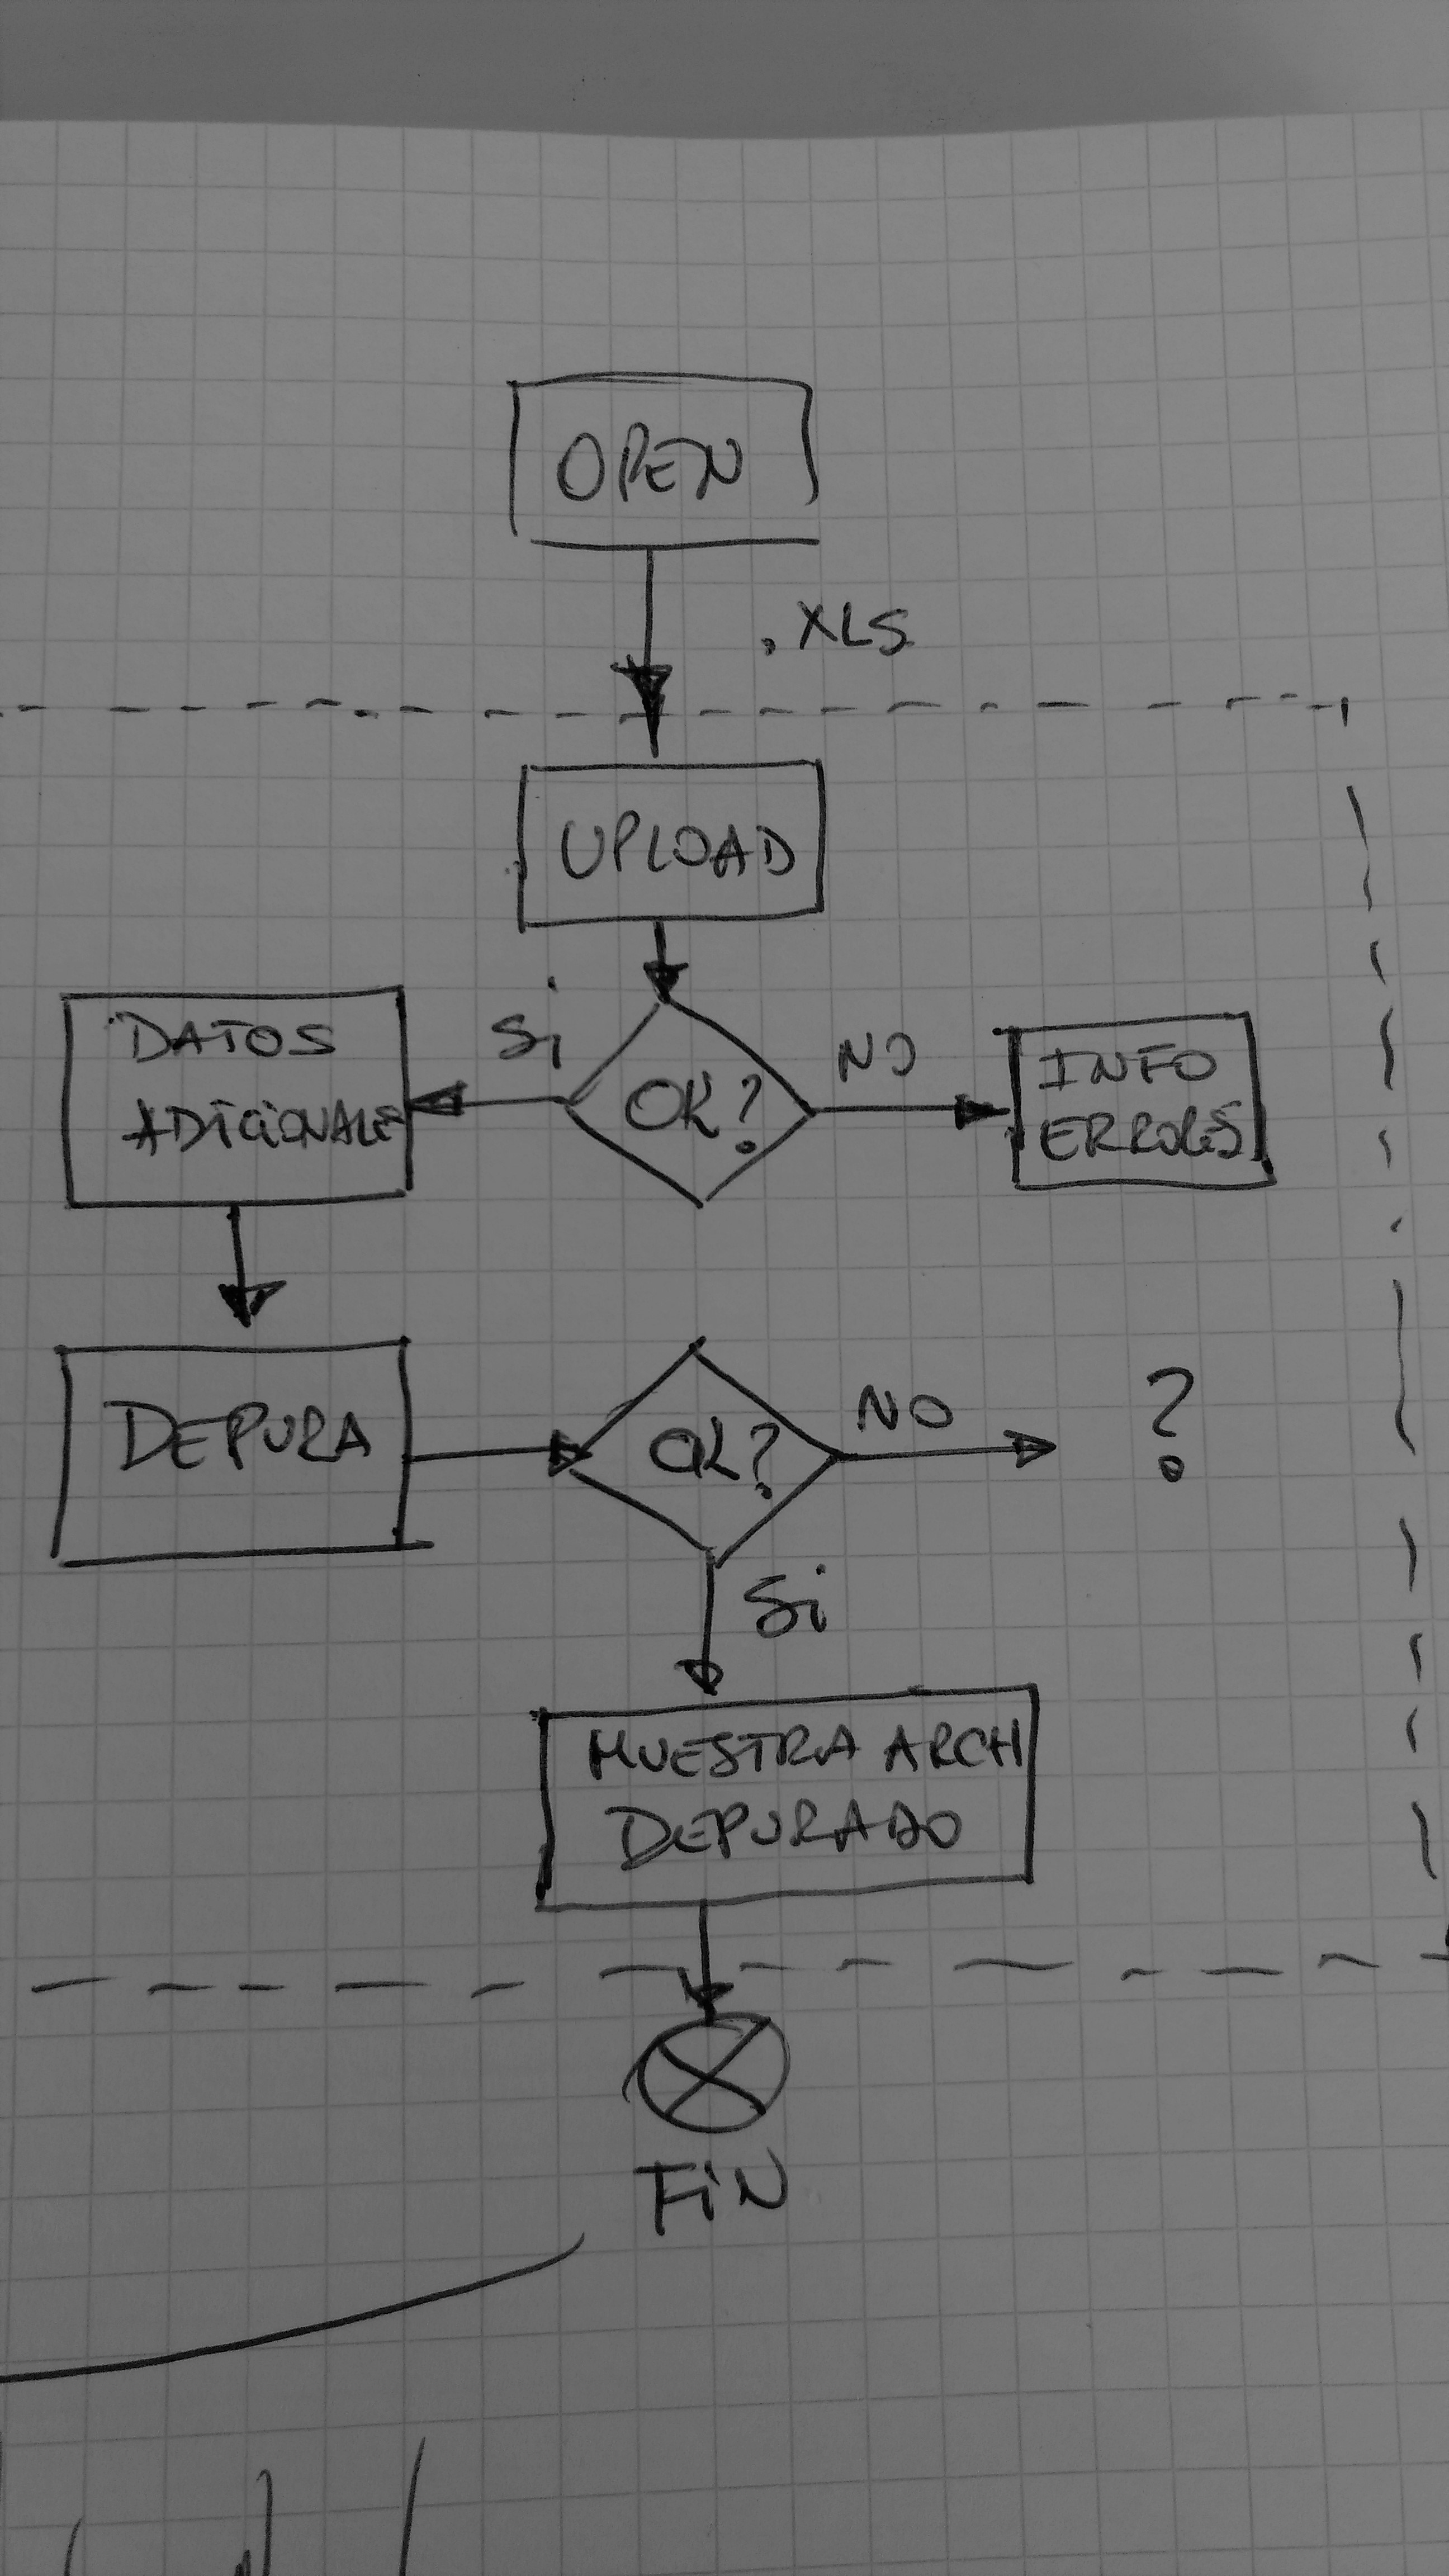 OPEN
.XLS
UPLOAD
Si
NO
DATOS
ADICIONALES
OK?
INFO
ERRORES
DEPURA
OK?
NO
?
Si
MUESTRA ARCH
DEPURADO
FiN